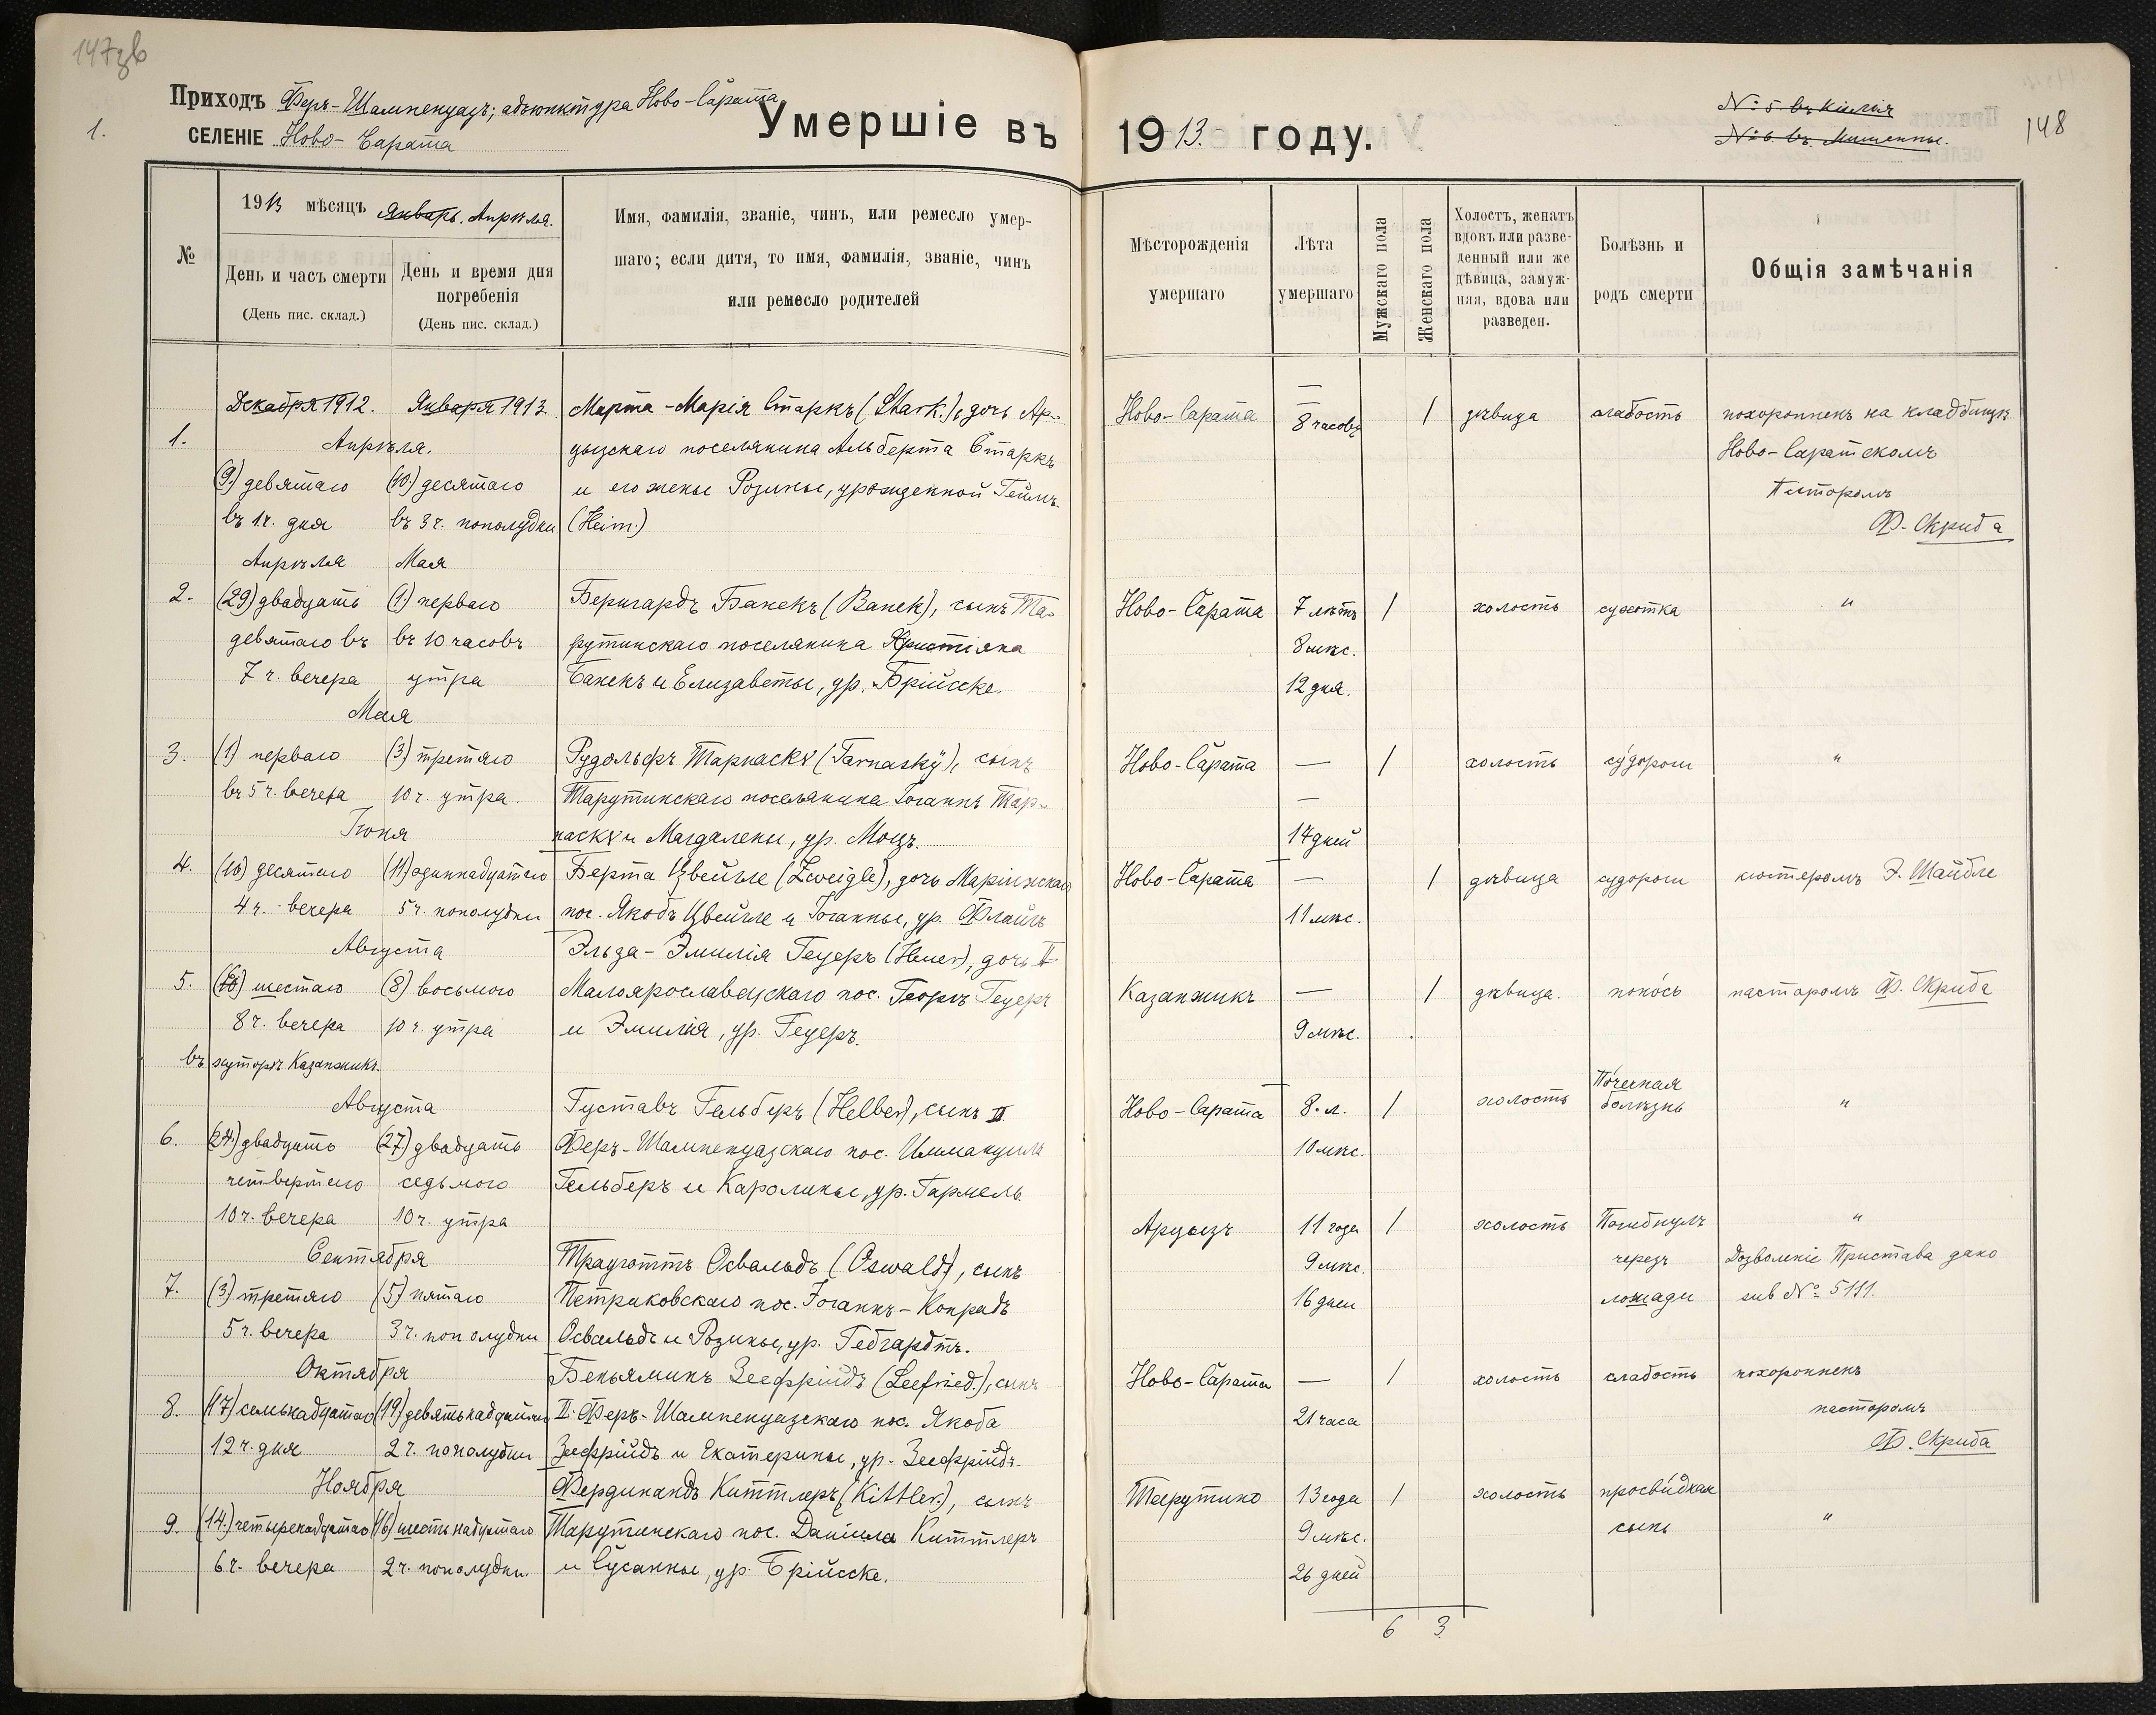 147зв
Приходъ Феръ-Шампенуазъ; адъюнктура Ново-Сарата
1.
СЕЛЕНІЕ Ново-Сарата
Умершіе въ 1913. году.
№ 5. въ Киліи
№ 6. въ
148
№
1913 мѣсяцъ Январь. Апрѣля.
День и часъ смерти
(День пис. склад.)
День и время дня
погребенія
(День пис. склад.)
Имя, фамилія, званіе, чинъ, или ремесло умер-
шаго; если дитя, то имя, фамилія, званіе, чинъ
или ремесло родителей
Мѣсторожденія
умершаго
Лѣта
умершаго
Мужскаго пола
Женскаго пола
Холостъ, женатъ
вдовъ или разве-
денный или же
дѣвица, замуж-
няя, вдова или
разведен.
Болѣзнь и
родъ смерти
Общія замѣчанія
Декабря 1912. Января 1913.
1. Апрѣля.
(9.) девятаго (10.) десятаго
въ 1 ч. дня въ 3 ч. пополудни
Марта-Марія Старкъ (Stark.), дочь Ар-
цызскаго поселянина Альберта Старкъ
и его жены Розины, урожденной Геймъ.
(Heim.)
Ново-Сарата
—
—
8 часовъ
1
дѣвица
слабость
похороненъ на кладбищѣ
Ново-Саратскомъ
Пасторомъ
Ф. Скриба
Апрѣля Мая
2. (29) двадцать (1.) перваго
девятаго въ въ 10 часовъ
7 ч. вечера утра
Бернгардъ Банекъ (Banek), сынъ Та-
рутинскаго поселянина Христіана
Банекъ и Елизаветы, ур. Брійске.
Ново-Сарата
7 лѣтъ
8 мѣс.
12 дня.
1
холостъ
сухотка
"
Мая
3. (1) перваго (3) третяго
въ 5 ч. вечера 10 ч. утра.
Рудольфъ Тарнаскѵ (Tarnaskÿ), сынъ
Тарутинскаго поселянина Іоганнъ Тар-
наскѵ и Магдалены, ур. Моцъ.
Ново-Сарата
—
—
14 дней
1
холостъ
су́дороги
"
Іюня
4. (10) десятаго (11) одиннадцатаго
4 ч. вечера 5 ч. пополудни
Берта Цвейгле (Zweigle), дочь Маріинскаго
пос. Якобъ Цвейгле и Іоганны, ур. Флайгъ
Ново-Сарата
—
11 мѣс.
1
дѣвица
судороги
кюстеромъ Э. Шайбле
Августа
5. (6) шестаго (8) восьмого
8 ч. вечера 10 ч. утра
въ хуторѣ Казанжикъ.
Эльза-Эмилія Гецеръ (Heuer), дочь II
Малоярославецскаго пос. Георгъ Гецеръ
и Эмилія, ур. Гецеръ.
Казанжикъ
—
9 мѣс.
1
дѣвица.
поно́съ
пасторомъ Ф. Скриба
Августа
6. (24.) двадцать (27) двадцать
четвертаго седьмого
10 ч. вечера 10 ч. утра
Густавъ Гельберъ (Helber), сынъ II
Феръ-Шампенуазскаго пос. Иммануилъ
Гельберъ и Каролины, ур. Гармель
Ново-Сарата
8. л.
10 мѣс.
1
холостъ
По́чечная
болѣзнь
"
Сентября
7. (3) третяго (5) пятаго
5 ч. вечера 3 ч. пополудни
Трауготтъ Освальдъ (Oswald), сынъ
Петраковскаго пос. Іоганнъ-Конрадъ
Освальдъ и Розины, ур. Гебгардтъ.
Арцызъ
11 года
9 мѣс.
16 дней
1
холостъ
Погибнулъ
черезъ
лошади
"
Дозволеніе Пристава дано
sub № 5111.
Октября
8. (17) семьнадцатаго (19) девятьнадцатаго
12 ч. дня 2 ч. пополудни
Беньяминъ Зеефрійдъ (Seefried.), сынъ
II. Феръ-Шампенуазскаго пос. Якоба
Зеефрійдъ и Екатерины, ур. Зеефрійдъ
Ново-Сарата
—
21 часа
1
холостъ
слабость
похороненъ
пасторомъ
Ф. Скриба
Ноября
9. (14.) четыренадцатаго (16) шестьнадцатаго
6 ч. вечера 2 ч. пополудни.
Фердинандъ Киттлеръ (Kittler.), сынъ
Тарутинскаго пос. Даніила Киттлеръ
и Сусанны, ур. Брійске.
Тарутино
13 года
9 мѣс.
26 дней
1
холостъ
просви́дная
сыпь
"
6 3